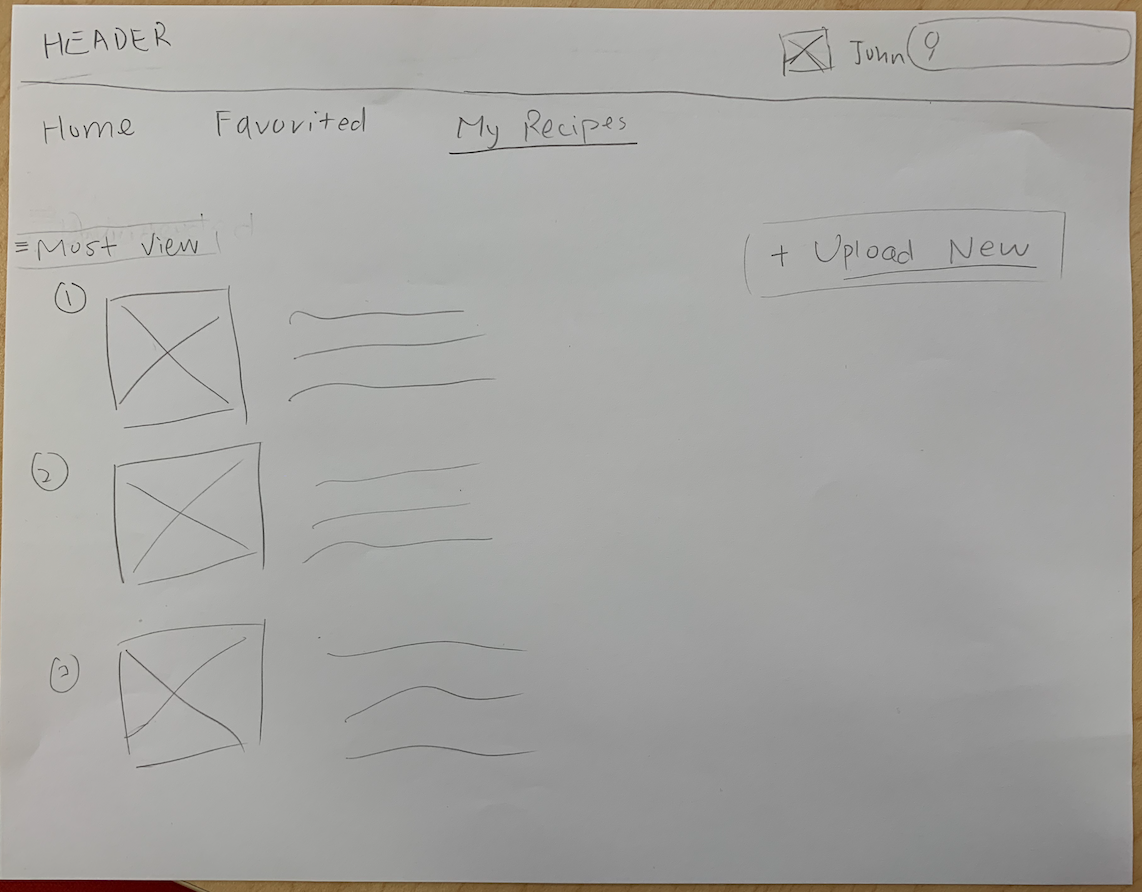 HEADER John
Home Favorited My Recipes
Most View + Upload New
1
2
3